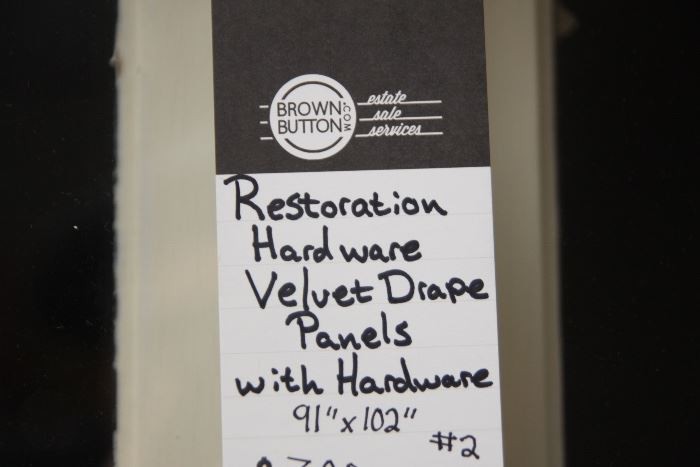 BROWN
BUTTON
.COM
estate
sale
services
Restoration
Hardware
Velvet Drape
Panels
with Hardware
91"x102"
#2